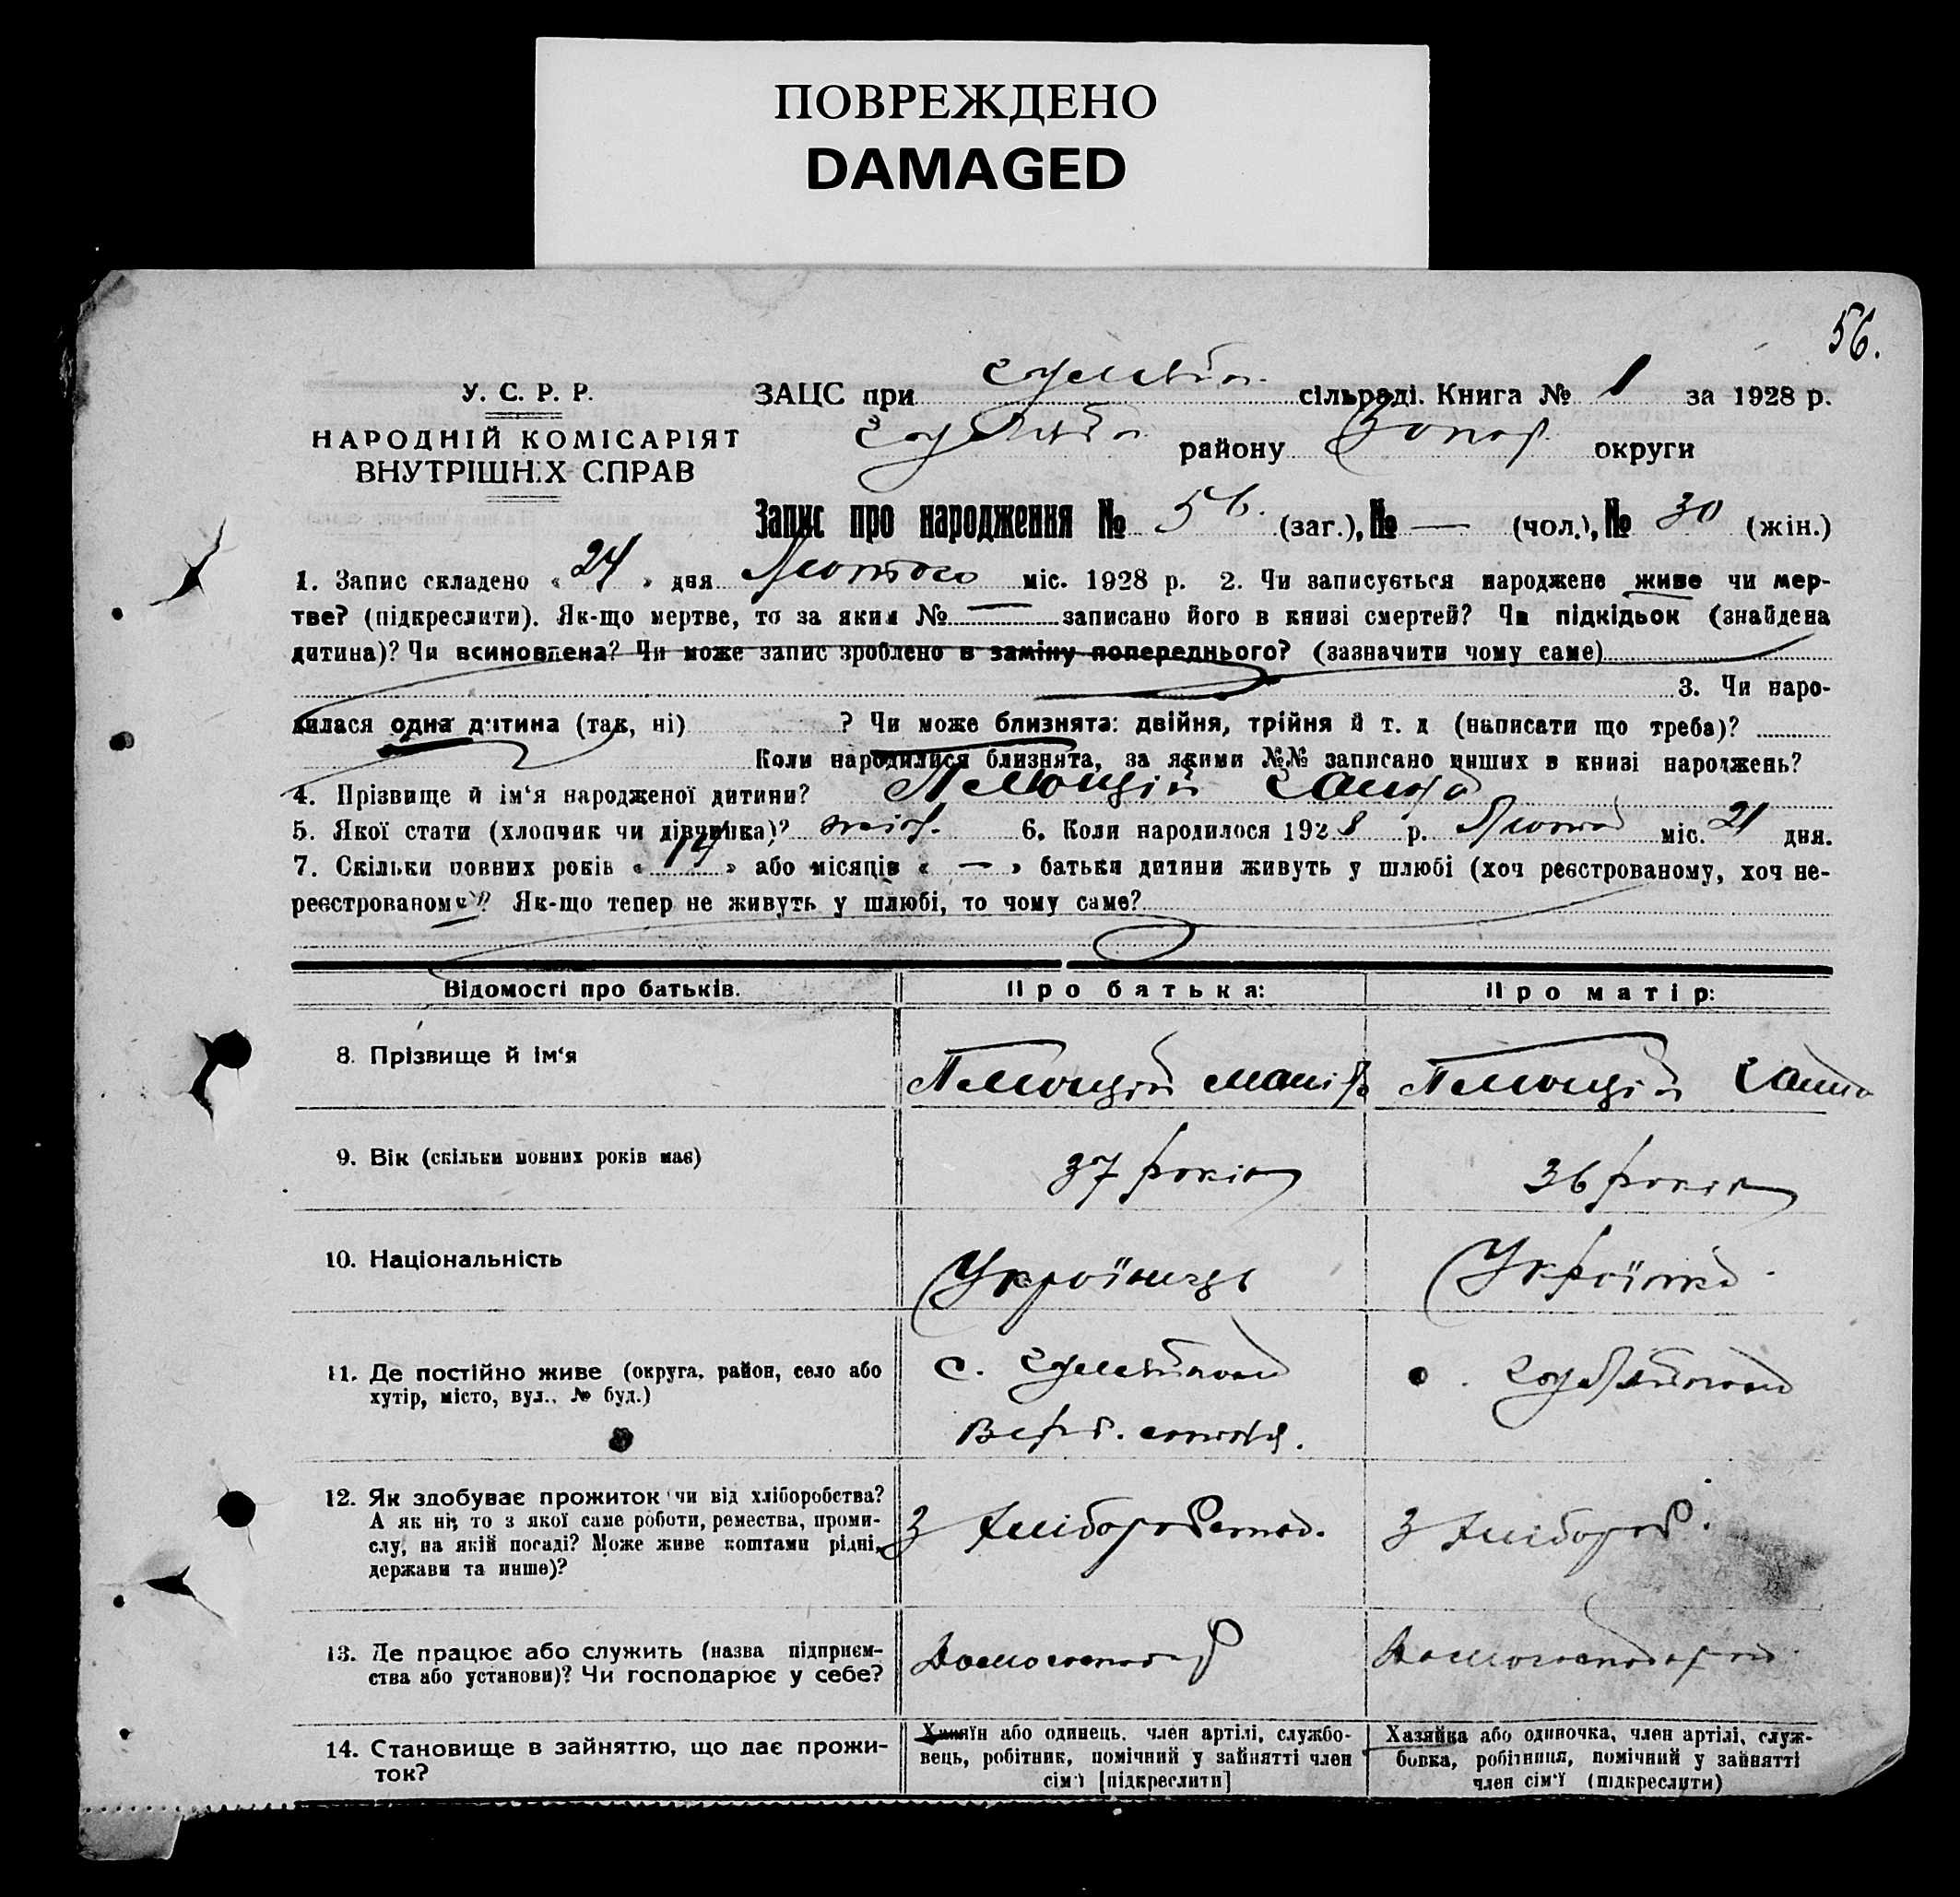 ПОВРЕЖДЕНО
DAMAGED
56.
У. С. Р. Р.
НАРОДНІЙ КОМІСАРІЯТ
ВНУТРІШНІХ СПРАВ
ЗАЦС при сільраді. Книга № 1 за 1928 р.
району Запор. округи
Запис про народження № 56. (заг.), № — (чол.), № 30 (жін.)
1. Запис складено « 24 » дня Лютого міс. 1928 р. 2. Чи записується народжене живе чи мер-
тве? (підкреслити). Як-що мертве, то за яким № — записано його в книзі смертей? Чи підкідьок (знайдена
дитина)? Чи всиновлена? Чи може запис зроблено в заміну попереднього? (зазначити чому саме)
3. Чи наро-
дилася одна дитина (так, ні) ? Чи може близнята: двійня, трійня й т. д (написати що треба)?
Коли народилися близнята, за якими №№ записано инших в книзі народжень?
4. Прізвище й ім‘я народженої дитини?
5. Якої стати (хлопчик чи дівчинка)? 6. Коли народилося 1928 р. міс. 21 дня.
7. Скільки повних років « 14 » або місяців « — » батьки дитини живуть у шлюбі (хоч реєстрованому, хоч не-
реєстрованому)? Як-що тепер не живуть у шлюбі, то чому саме?
Відомості про батьків. Про батька: Про матір:
8. Прізвище й ім‘я Ганна
9. Вік (скільки повних років має) 37 років 36 років
10. Національність Українець Українка
11. Де постійно живе (округа, район, село або
хутір, місто, вул., № буд.) с. с.
12. Як здобуває прожиток чи від хліборобства?
А як ні, то з якої саме роботи, ремества, проми-
слу, на якій посаді? Може живе коштами рідні,
держави та инше)? З хліборобства. З хлібороб.
13. Де працює або служить (назва підприєм-
ства або установи)? Чи господарює у себе? Домогосподар
14. Становище в зайняттю, що дає прожи-
ток?
Хазяїн або одинець, член артілі, службо-
вець, робітник, помічний у зайнятті член
сім‘ї [підкреслити]
Хазяйка або одиночка, член артілі, служ-
бовка, робітниця, помічний у зайнятті
член сім‘ї (підкреслити)